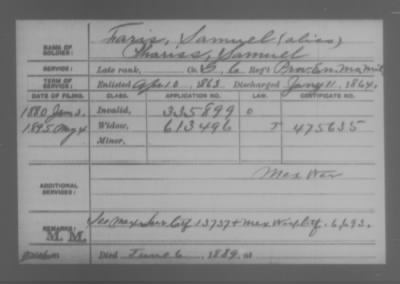 Faris, Samuel (alias)
NAME OF SOLDIER: Phariss, Samuel
SERVICE: Late rank, Co. G, 6 Reg't Prov. En. Mo. Mil.
TERM OF SERVICE: Enlisted Apr. 10, 1863 Discharged Jany 11, 1864.
DATE OF FILING. CLASS. APPLICATION NO. LAW. CERTIFICATE NO.
1880 Jan 3. Invalid, 335899 0
1895 My 4 Widow, 613496 T 475635
Minor,
ADDITIONAL SERVICES: Mex War
REMARKS: See Mex Sur Ctf 13737 + Mex Wid Ctf. 6,693.
M. M.
Died June 6, 1889, at